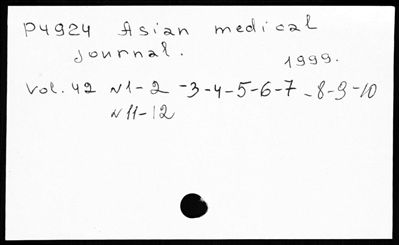 P4924 Asian medical
journal.
1999.
Vol. 42 N1-2 -3-4-5-6-7-8-9-10
N11-12